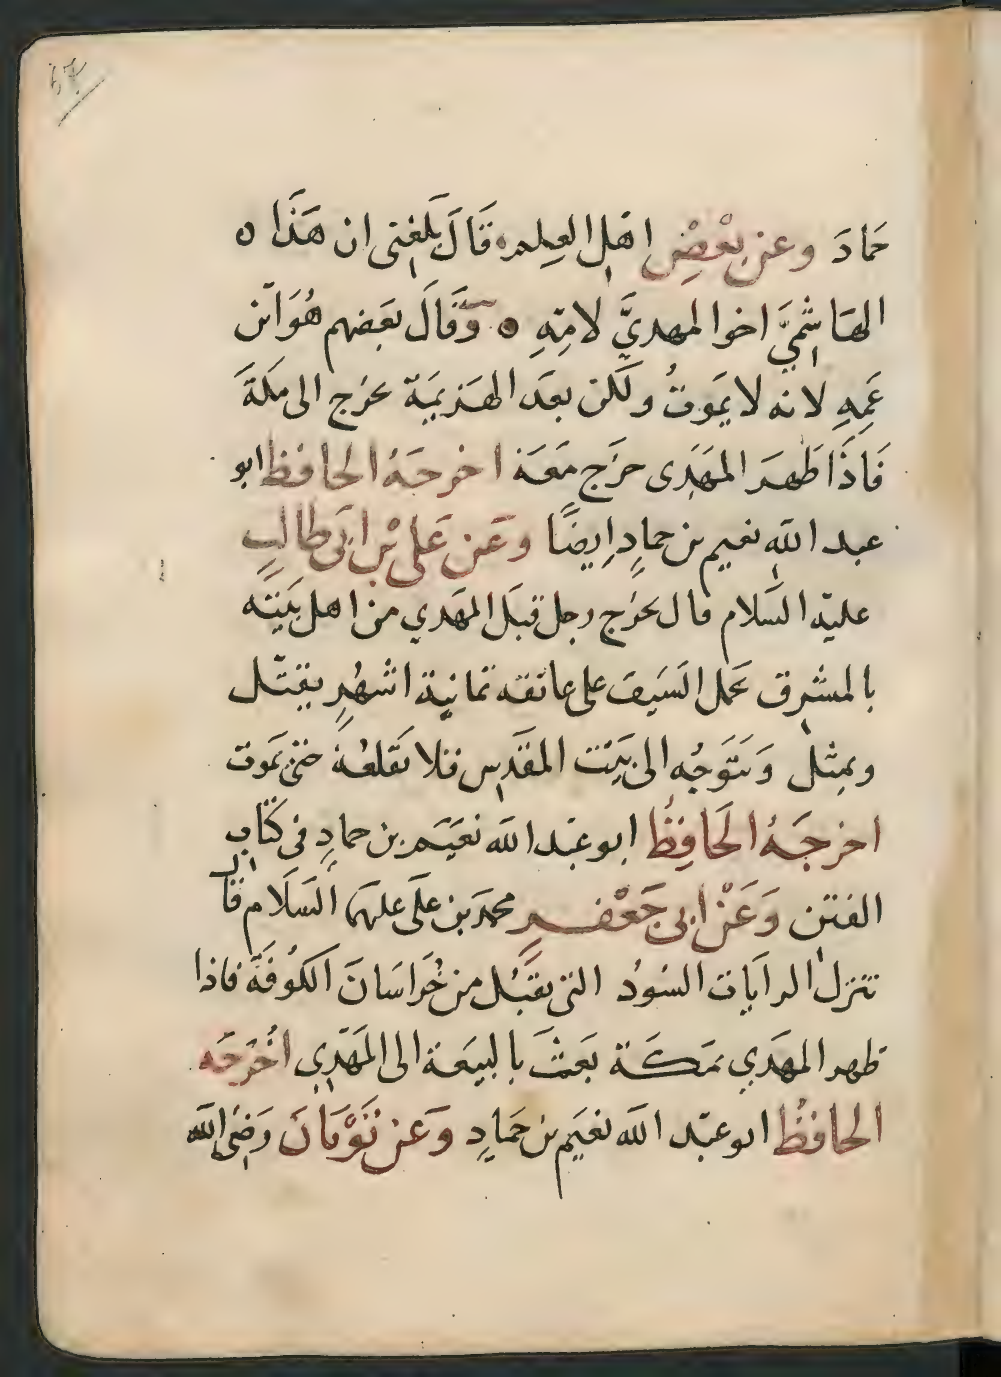 حمادَ وعن بعْضِ اهل العِلمِ ه قَالَ بَلَغنى ان هَذَا ٥
الهَاشميَّ اخوا لمهديَّ لامّهِ ٥ وَقَالَ بعَضهم هُوَ ابن
عَمِهِ لانه لا يَموتُ ولكن بعدَ الهَزيمَة يخرج الى مكةَ
فَاذَا ظَهرَ المَهدى خرَج مَعَه اخرجَهُ الحافظ ابو
عبد الله نعيم بن حمادٍ ايضًا وعَن عَلى بْن ابى طالبٍ
عليه السَلام قال يخرُج رجل قبَل المَهدي من اهل بَيته
بالمشرق يحمل السَيف على عاتقه ثمانية اشهُرٍ يقتل
ويمثل وَيتَوَجُه الى بَيْت المقَدس فلا يَبلغهُ حتى يَموت
اخرجَهُ الحَافِظُ ابو عبْد الله نعَيَم بن حمادٍ فى كتَاب
الفتن وَعَنْ ابى جَعْفرٍ محمد بن عَلَى عليهما السَلَام قَال
تنزل الرايَات السُودُ التى تقبُل من خُرَاسَانَ الكوُفَةَ فاذا
ظهر المَهدي بمَكَة بعَثَ بالبيعَة الى المَهدِى اخْرَجَه
الحافظُ ابو عبْد الله نعَيَم بن حمَادٍ وعَن ثَوْبَانَ رَضىَ الله